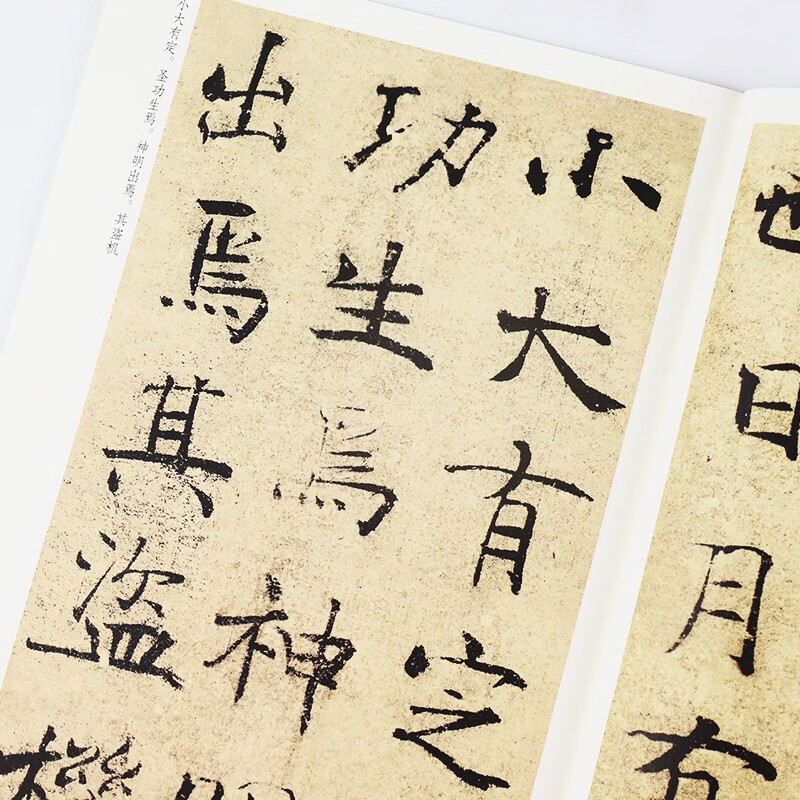 也日月有
小大有定
功生焉神明
出焉其盜機
小大有定。圣功生焉。神明出焉。其盗机